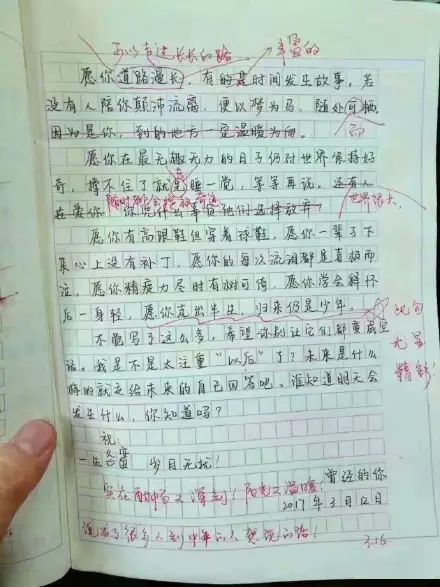 可以奔过长长的路
丰富的
愿你道路漫长，有的是时间发生故事。若
没有人陪你颠沛流离，便以梦为马，随处可栖。
因为是你，到的地方一定温暖为向。
而
愿你在最无趣无力的日子仍对世界保持好
奇，撑不住了就先睡一觉，等等再说。还有人
在爱你，你凭什么辜负他们选择放弃？
世界你大
愿你有高跟鞋但穿着球鞋，愿你一辈子下
来心上没有补丁，愿你的每次流泪都是喜极而
泣，愿你精疲力尽时有树可倚，愿你学会释怀
后一身轻，愿你走出半生，归来仍是少年。
此句
尤显
精彩！
不能写了这么多，希望你别让它们都变成空
话。我是不是太注重“以后”了？未来是什么
样的就交给未来的自己回答吧。谁知道明天会
发生什么，你知道吗？
祝：
一生
岁月无扰！
曾经的你
2017年3月12日
实在 又深刻！阳光又温暖，
说出了很多人到中年的人 的路！
3.16